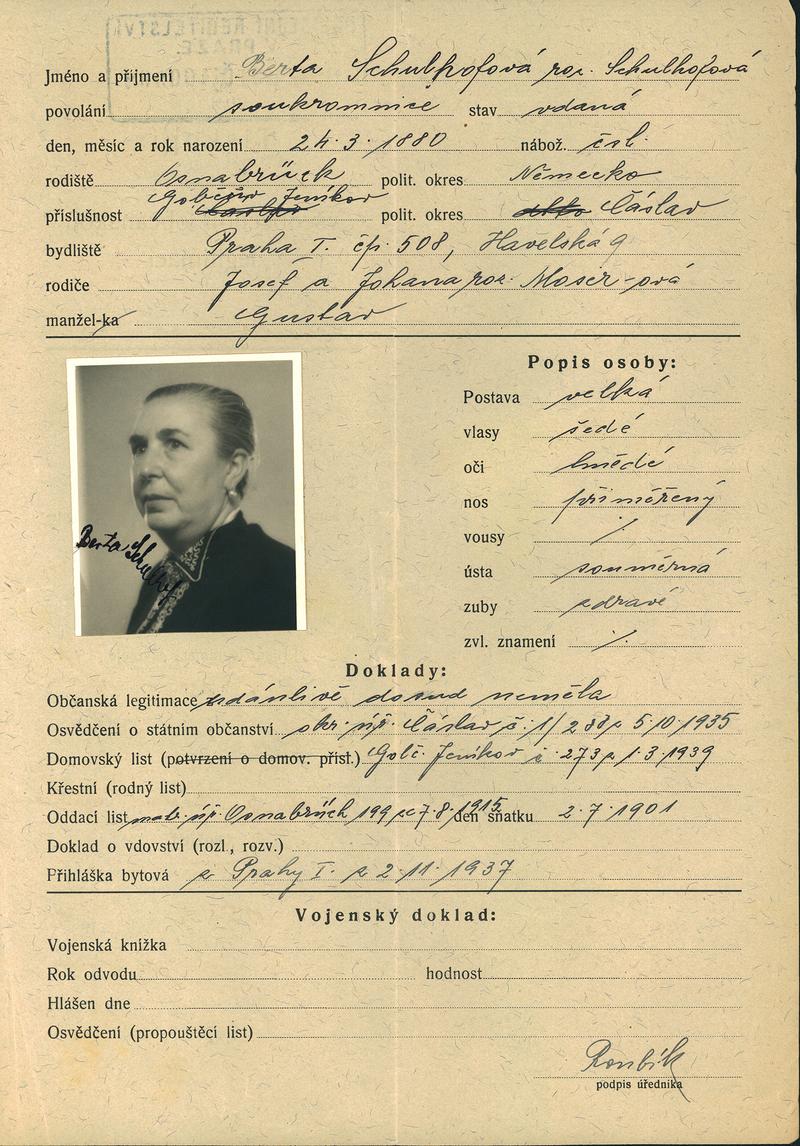 Jméno a příjmení Berta Schulhofová roz. Schulhofová
povolání soukromnice stav vdaná
den, měsíc a rok narození 24.3.1880 nábož. čsl.
rodiště Osnabrück polit. okres Německo
příslušnost Golčův Jeníkov polit. okres Čáslav
bydliště Praha I. čp. 508, Havelská 9
rodiče Josef a Johana roz. Moser-ová
manžel-ka Gustav
Popis osoby:
Postava velká
vlasy šedé
oči hnědé
nos přiměřený
vousy /.
ústa souměrná
zuby zdravé
zvl. znamení /.
Berta Schulhof
Doklady:
Občanská legitimace zdánlivě dosud neměla
Osvědčení o státním občanství okr. úř. Čáslav č. 1/233 z 5.10.1935
Domovský list (potvrzení o domov. přísl.) Golč. Jeníkov č. 273 z 1.3.1939
Křestní (rodný list)
Oddací list matr. úř. Osnabrück 199 ze 7.8.1915 den sňatku 2.7.1901
Doklad o vdovství (rozl., rozv.)
Přihláška bytová z Prahy I. z 2.11.1937
Vojenský doklad:
Vojenská knížka
Rok odvodu hodnost
Hlášen dne
Osvědčení (propouštěcí list)
Roubík
podpis úředníka